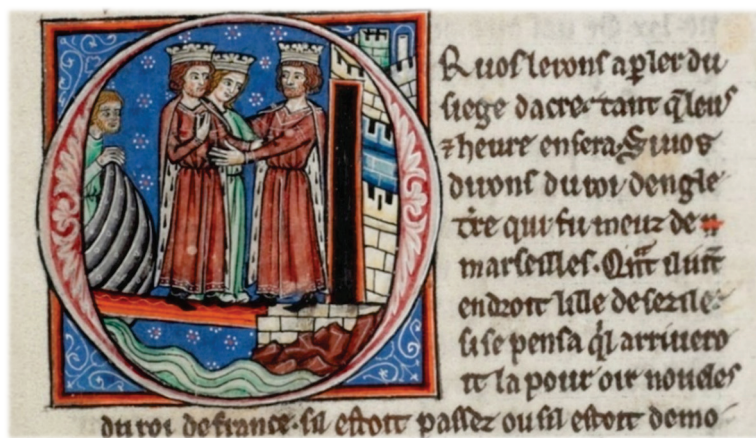 R uos lerons a pler du
siege dacre tant q̃ leus
⁊ heure en sera. Si uos
dirons du roi dengle
t̃re qui fu meuz de
marseilles. Qñt il uīt
endroit lille de sezile
si se pensa q̃l arriuero
it la pour oir noueles
du roi de france. sil estoit passez ou sil estoit demo